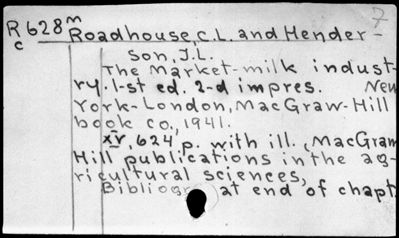 7
R628m Roadhouse, C.L. and Hender-
c son, J.L.
The Market-milk indust-
ry. 1-st ed. 2-d impres. New
York-London, MacGraw-Hill
book co., 1941.
XV, 624 p. with ill. (MacGraw
Hill publications in the ag-
ricultural sciences,
Bibliogr. at end of chapt.